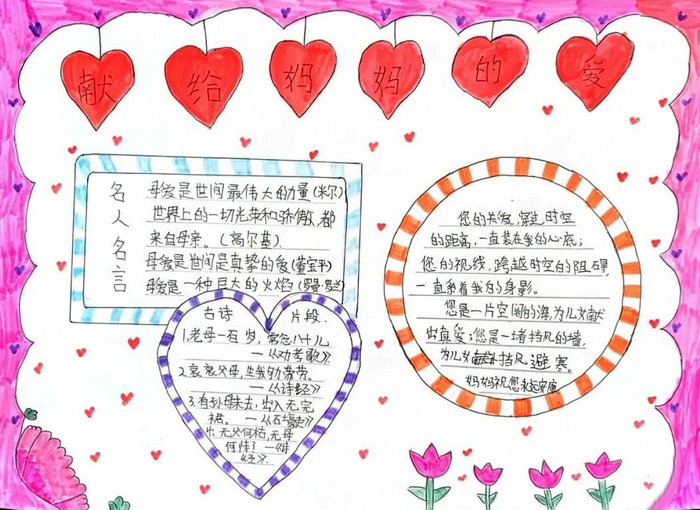 献给妈妈的爱
名人名言
母爱是世间最伟大的力量(米尔)
世界上的一切光荣和骄傲,都
来自母亲。(高尔基)
母爱是世间是真挚的爱(董宝平)
母爱是一种巨大的火焰(罗曼·罗兰)
古诗片段
1.老母一百岁,常念八十儿
—《劝孝歌》
2.哀哀父母,生我劬劳。
—《诗经》
3.有孙母未去,出入无完
裙。—《石壕吏》
无父何怙,无母
何恃?—《诗
经》
您的关爱,穿过时空
的距离,一直装在我的心底;
您的视线,跨越时空的阻碍,
一直系着我的身影。
您是一片空阔的海,为儿女献
出真爱;您是一堵挡风的墙,
为儿女挡风避寒。
妈妈祝您永远安康